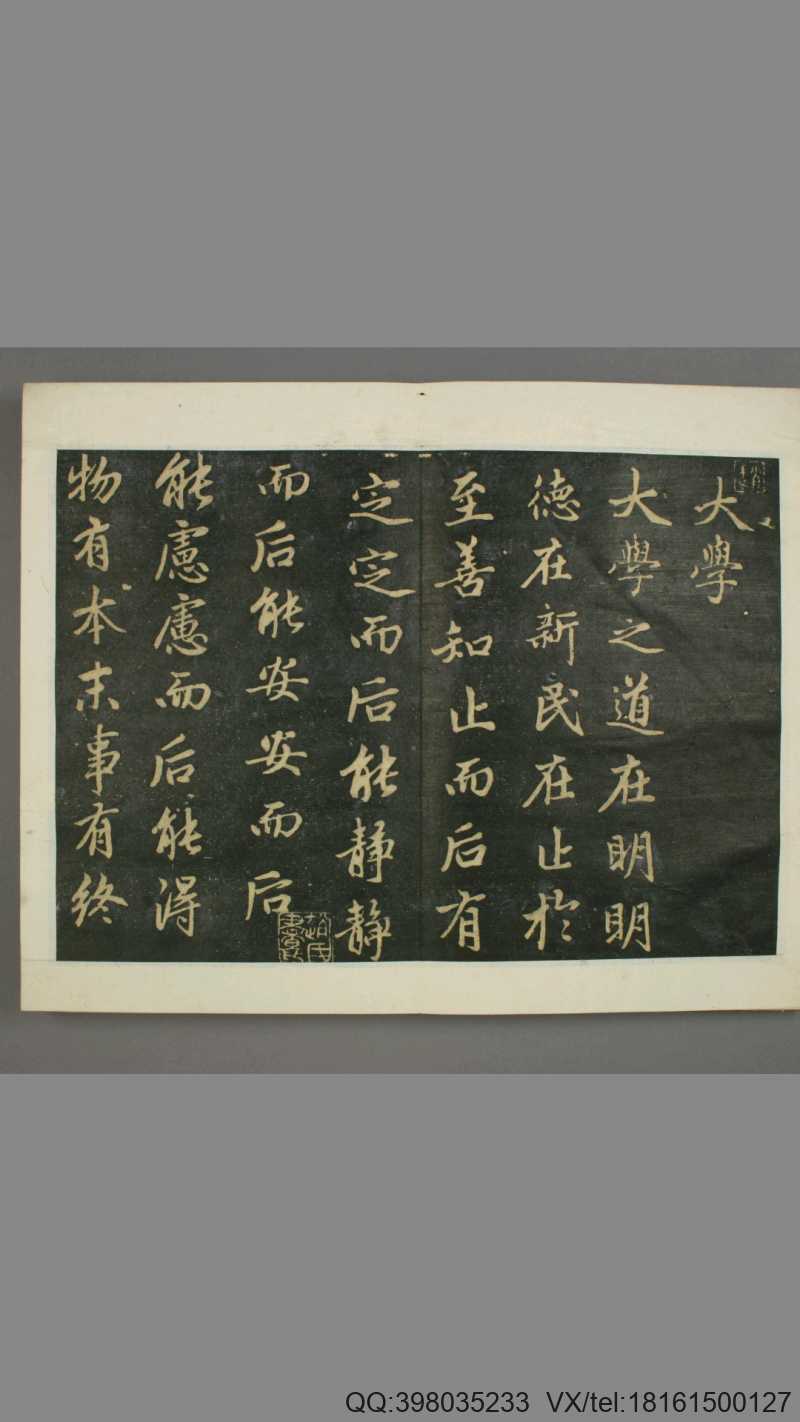 大學
大學之道在明明
德在新民在止於
至善知止而后有
定定而后能静静
而后能安安而后
能慮慮而后能得
物有本末事有終
QQ:398035233 VX/tel:18161500127